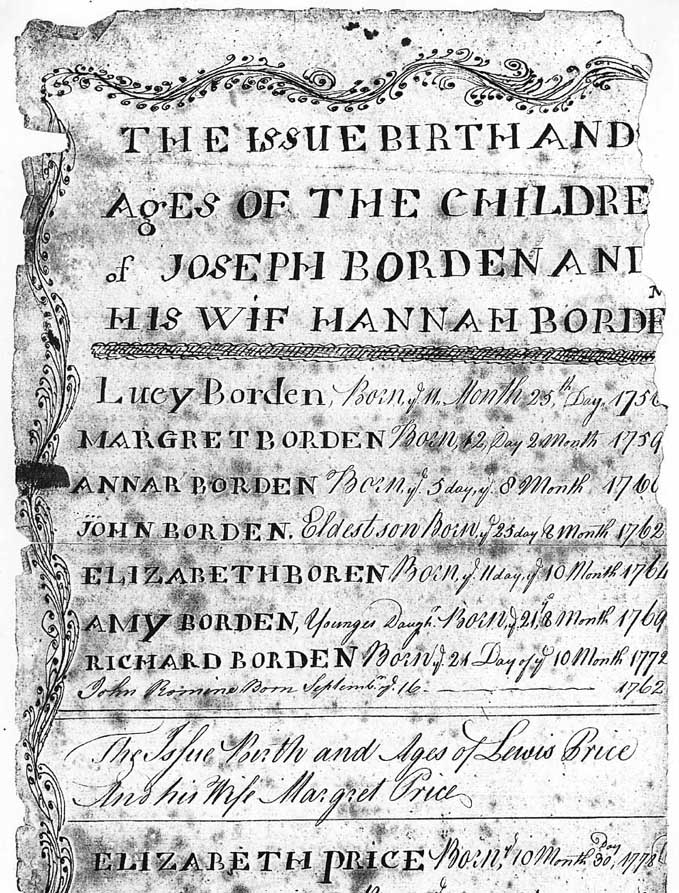 THE ISSUE BIRTH AND
AgES OF THE CHILDRE
of JOSEPH BORDEN AND
HIS WiF HANNAH BORDEN
Lucy Borden, Born, ye 11. Month 25,th Day, 175
MARGRET BORDEN Born, 12 Day 2 Month 1759
ANNAR BORDEN Born, ye 5 day, ye 8 Month 176
JOHN BORDEN. Eldest son Born, ye 25 day 8 Month 1762
ELIZABETH BOREN Born, ye 11 day, ye 10 Month 1764
AMY BORDEN, Younges Daugh.r Born, ye 21, 8 Month 1769
RICHARD BORDEN Born ye 24 Day of ye 10 Month 1772
John Romine Born Septemb.r ye 16. 1762
The Issue Berth and Ages of Lewis Price
And his Wife Margret Price
ELIZABETH PRICE Born, ye 10 Month Day 30, 1778